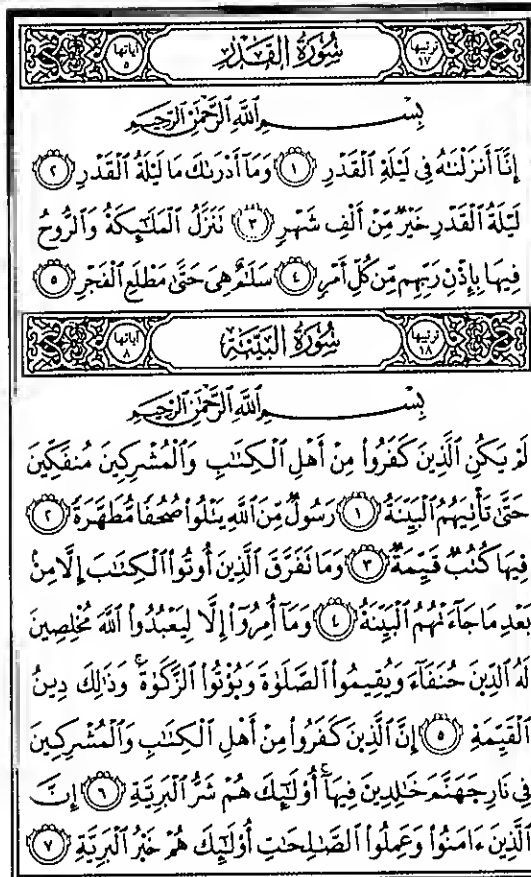 ترتيبها ١٧ سُورَةُ الْقَدْرِ آياتها ٥
بِسْمِ اللَّهِ الرَّحْمَٰنِ الرَّحِيمِ
إِنَّا أَنزَلْنَٰهُ فِى لَيْلَةِ ٱلْقَدْرِ ١ وَمَآ أَدْرَىٰكَ مَا لَيْلَةُ ٱلْقَدْرِ ٢
لَيْلَةُ ٱلْقَدْرِ خَيْرٌ مِّنْ أَلْفِ شَهْرٍ ٣ تَنَزَّلُ ٱلْمَلَٰٓئِكَةُ وَٱلرُّوحُ
فِيهَا بِإِذْنِ رَبِّهِم مِّن كُلِّ أَمْرٍ ٤ سَلَٰمٌ هِىَ حَتَّىٰ مَطْلَعِ ٱلْفَجْرِ ٥
ترتيبها ١٨ سُورَةُ الْبَيِّنَةِ آياتها ٨
بِسْمِ اللَّهِ الرَّحْمَٰنِ الرَّحِيمِ
لَمْ يَكُنِ ٱلَّذِينَ كَفَرُوا۟ مِنْ أَهْلِ ٱلْكِتَٰبِ وَٱلْمُشْرِكِينَ مُنفَكِّينَ
حَتَّىٰ تَأْتِيَهُمُ ٱلْبَيِّنَةُ ١ رَسُولٌ مِّنَ ٱللَّهِ يَتْلُوا۟ صُحُفًا مُّطَهَّرَةً ٢
فِيهَا كُتُبٌ قَيِّمَةٌ ٣ وَمَا تَفَرَّقَ ٱلَّذِينَ أُوتُوا۟ ٱلْكِتَٰبَ إِلَّا مِنۢ
بَعْدِ مَا جَآءَتْهُمُ ٱلْبَيِّنَةُ ٤ وَمَآ أُمِرُوٓا۟ إِلَّا لِيَعْبُدُوا۟ ٱللَّهَ مُخْلِصِينَ
لَهُ ٱلدِّينَ حُنَفَآءَ وَيُقِيمُوا۟ ٱلصَّلَوٰةَ وَيُؤْتُوا۟ ٱلزَّكَوٰةَ ۚ وَذَٰلِكَ دِينُ
ٱلْقَيِّمَةِ ٥ إِنَّ ٱلَّذِينَ كَفَرُوا۟ مِنْ أَهْلِ ٱلْكِتَٰبِ وَٱلْمُشْرِكِينَ
فِى نَارِ جَهَنَّمَ خَٰلِدِينَ فِيهَآ ۚ أُو۟لَٰٓئِكَ هُمْ شَرُّ ٱلْبَرِيَّةِ ٦ إِنَّ
ٱلَّذِينَ ءَامَنُوا۟ وَعَمِلُوا۟ ٱلصَّٰلِحَٰتِ أُو۟لَٰٓئِكَ هُمْ خَيْرُ ٱلْبَرِيَّةِ ٧